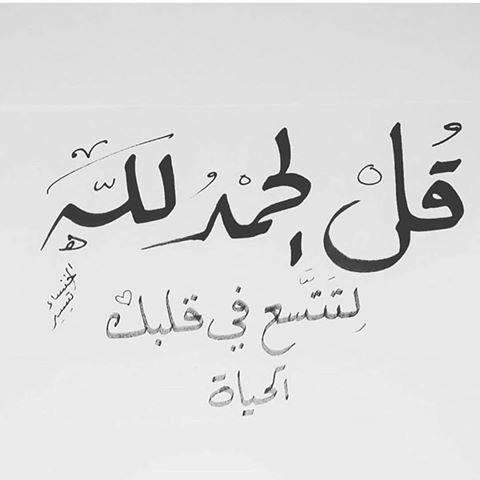 قُلْ الحَمْدُ لِلَّهِ
لِتَتَّسع في قلبك
الحياة
الخنساء
تيسير